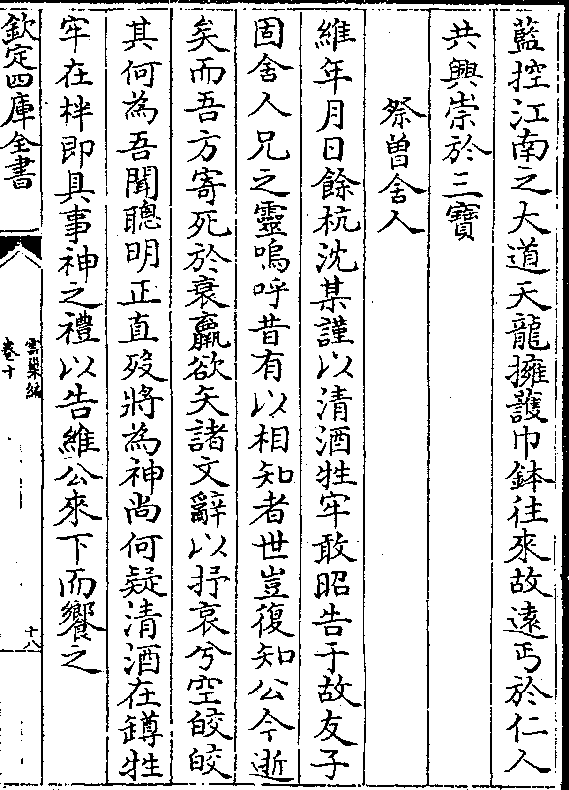 藍控江南之大道天龍擁護巾鉢往來故遠丐於仁人
共興崇於三寶
祭曽舍人
維年月日餘杭沈某謹以清酒牲牢敢昭告于故友子
固舍人兄之靈嗚呼昔有以相知者世豈復知公今逝
矣而吾方寄死於衰羸欲矢諸文辭以抒哀兮空皎皎
其何為吾聞聰明正直歿將為神尚何疑清酒在罇牲
牢在柈即具事神之禮以告維公來下而饗之
欽定四庫全書
雲巢編
卷十
十八